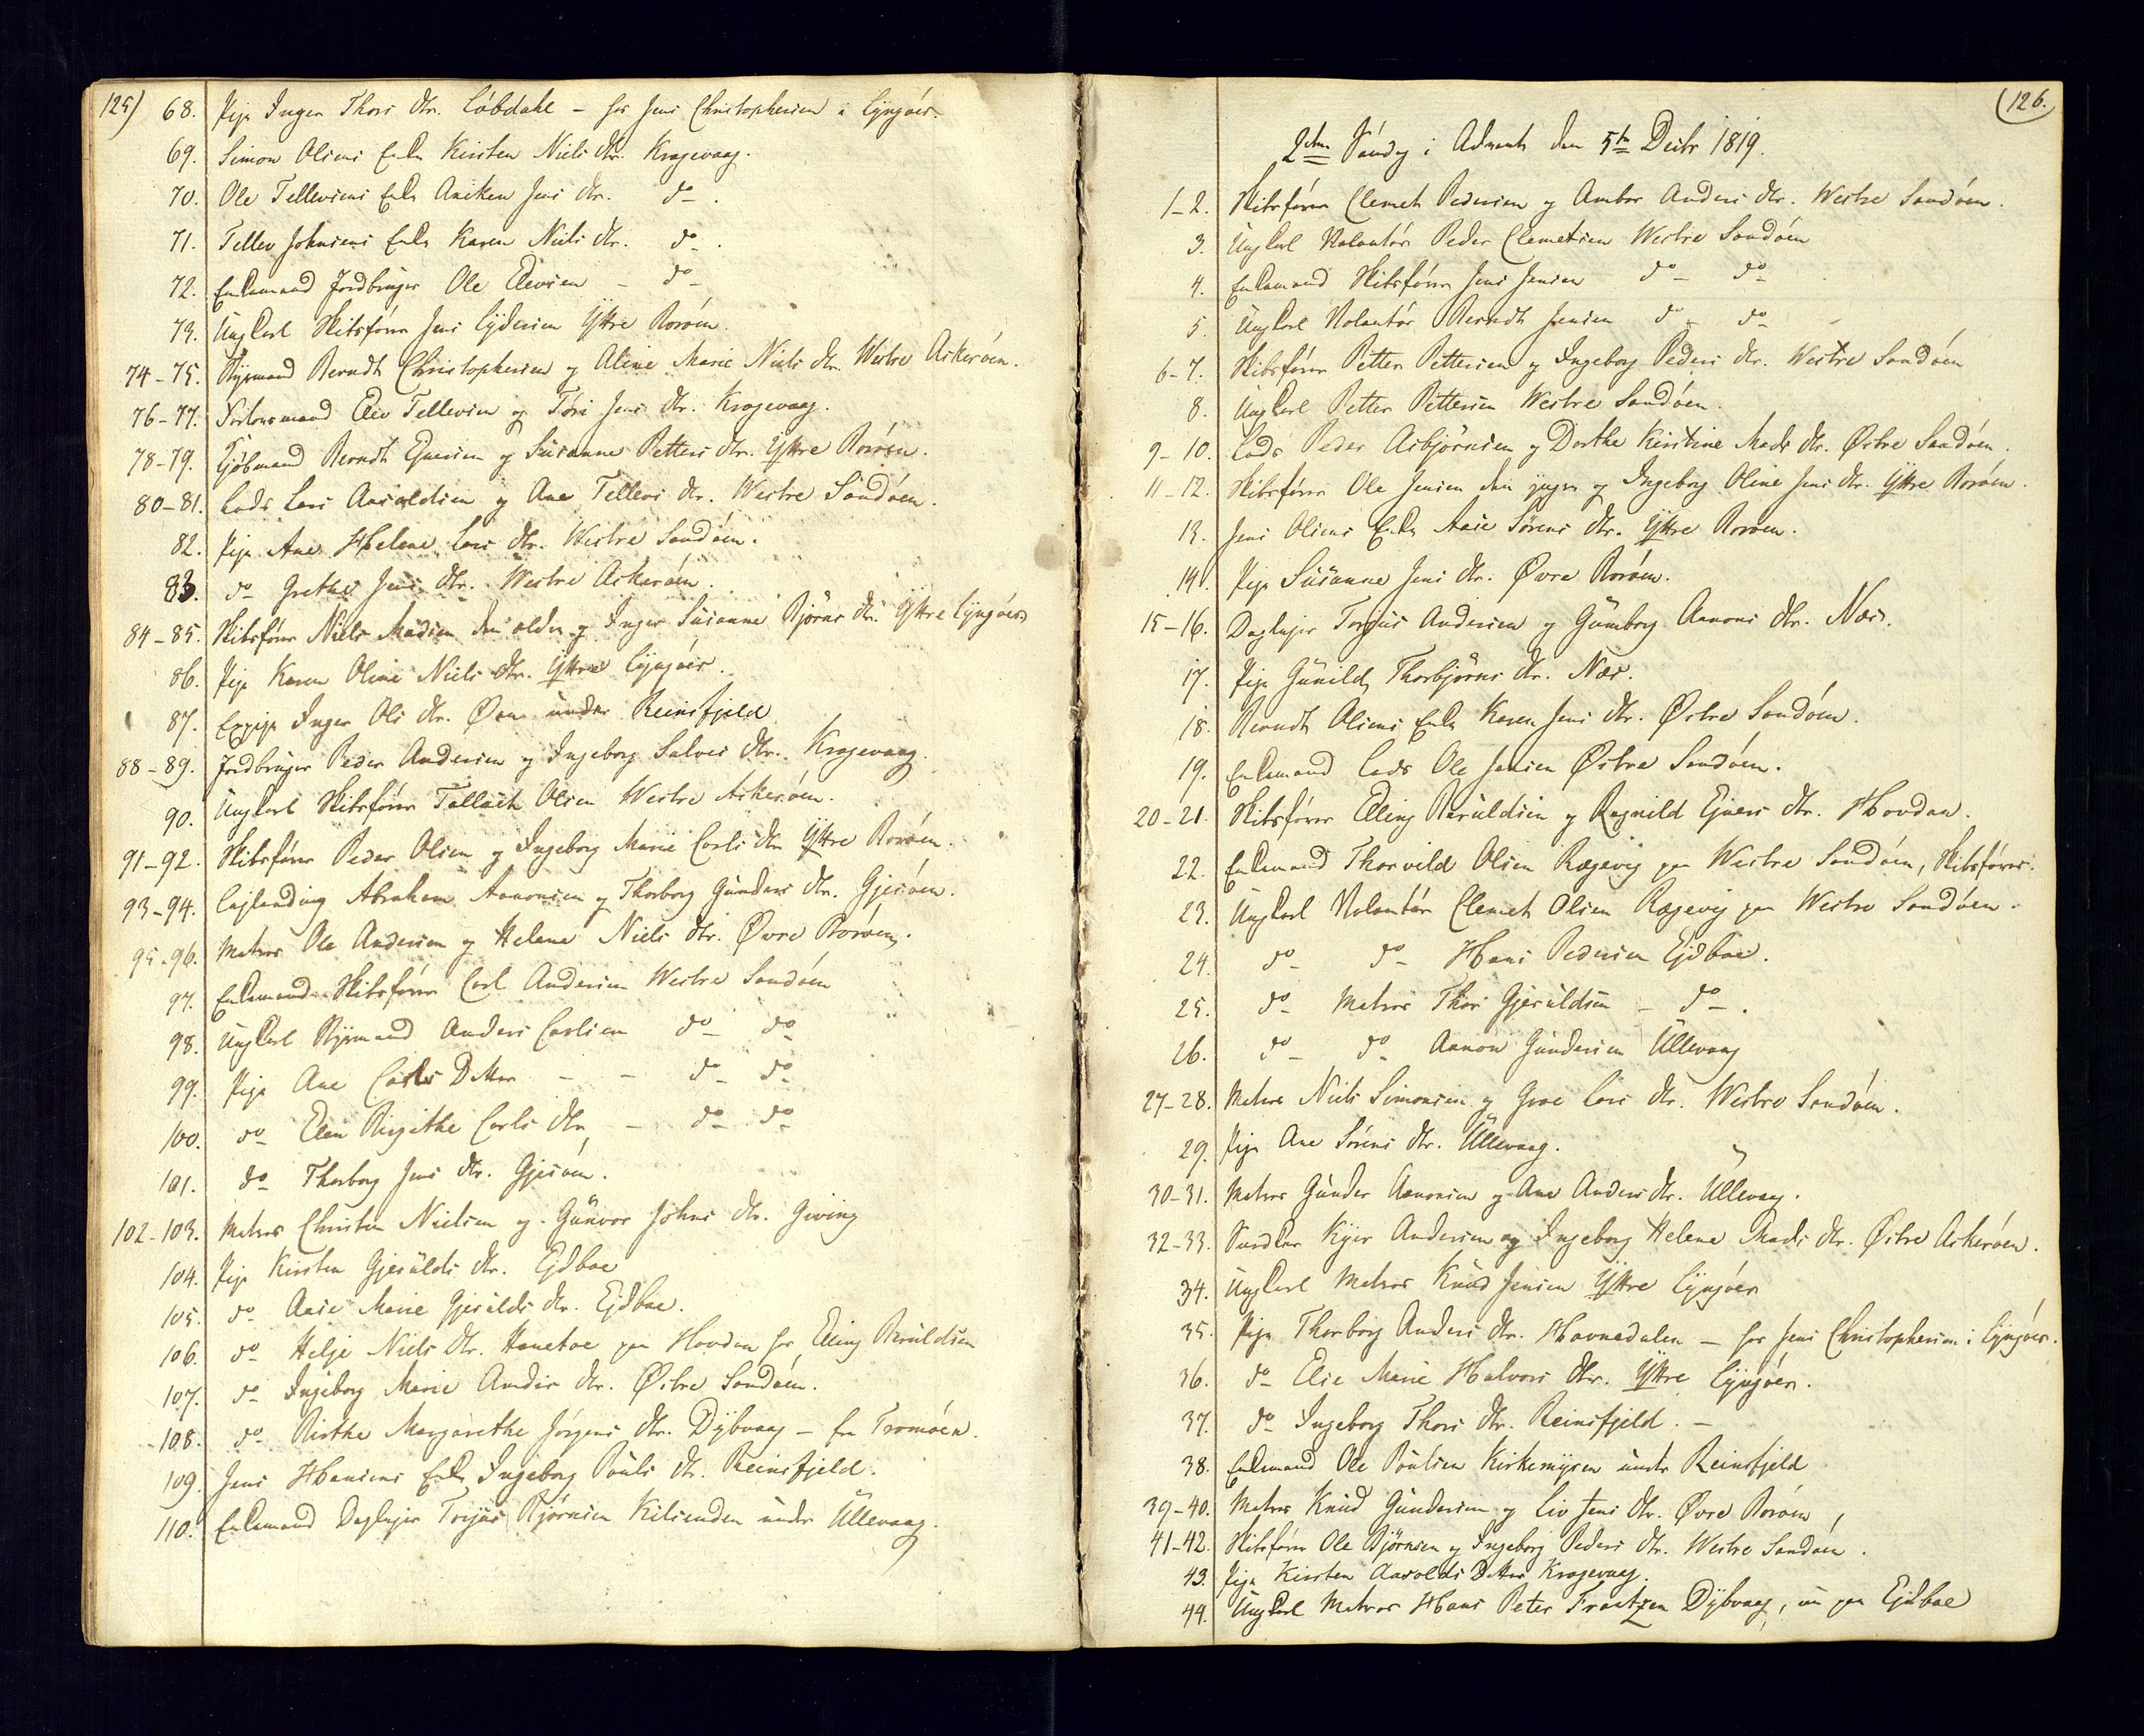 125)
68. Pige Inger Thors dtr. Løbdahl – hos Jens Christophersen i Lyngöer.
69. Simon Olsens Enke Kirsten Niels dtr. Kragevaag.
70. Ole Tellevsens Enke Aniken Jens dtr. do .
71. Tellev Johnsens Enke Karen Niels dtr. do .
72. Enkemand Jordbruger Ole Elevsen – do
73. Ungkarl Skibsförer Jens Lydersen Yttre Boröen.
74-75. Styrmand Berndt Christophersen og Aline Marie Niels dtr. Westre Askeröen.
76-77. Eiv Tellevsen og Töri Jens dtr. Kragevaag.
78-79. Kjöbmand Berndt Ejversen og Susanne Petters dtr. Yttre Boröen.
80-81. Lods Lars Aasoldsen og Ane Tellevs dtr. Westre Sandöen.
82. Pige Ane Helene Lars dtr. Westre Sandöen.
83. do Grethe Jens dtr. Westre Askeröen.
84-85. Skibsförer Niels Madsen den ældre og Inger Susanne Björns dtr. Yttre Lyngöer
86. Pige Karen Oline Niels dtr. Yttre Lyngöer.
87. Inger Ols dtr. Øen under Reinsfjeld
88-89. Jordbruger Peder Andersen og Ingeborg Salves dtr. Kragevaag.
90. Ungkarl Skibsförer Tallach Olsen Westre Askeröen.
91-92. Skibsförer Peder Olsen og Ingeborg Marie Carls dtr Yttre Boröen.
93-94. Abraham Aanonsen og Thorborg Gunders dtr. Gjesöen.
95-96. Matros Ole Andersen og Helene Niels dtr. Øvre Boröen.
97. Enkemand Skibsförer Carl Andersen Westre Sandöen
98. Ungkarl Styrmand Anders Carlsen do do
99. Pige Ane Carls Datter – – do do
100. do Elen Birgithe Carls dtr – do do
101. do Thorborg Jens dtr. Gjesöen.
102-103. Matros Christen Nielsen og Gunvor Johns dtr. Giving
104. Pige Kirsten Gjerulds dtr. Ejdboe
105. do Aase Marie Gjerulds dtr. Ejdboe.
106. do Helje Niels Dtr. Hanetoe paa Hovdan hos Elling Beruldsen
107. do Ingeborg Marie Anders dtr. Östre Sandöen.
108. do Birthe Margarethe Jörgens dtr. Dybvaag – fra Tromöen.
109. Jens Hansens Enke Ingeborg Pouls dtr. Reinsfjeld.
110. Enkemand Daglejer Torjus Björnsen Kilsenden under Ullevaag.
(126.
2den Söndag i Advent den 5te Decbr 1819.
1-2. Skibsförer Clemet Pedersen og Ambor Anders dtr. Westre Sandöen.
3. Ungkarl Volontör Peder Clemetsen Westre Sandöen
4. Enkemand Skibsförer Jens Jensen do do
5. Ungkarl Volontör Berndt Jensen do do
6-7. Skibsförer Petter Pettersen og Ingeborg Peders dtr. Westre Sandöen
8. Ungkarl Petter Pettersen Westre Sandöen.
9-10. Lods Peder Asbjörnsen og Dorthe Kirstine Mads dtr. Østre Sandöen.
11-12. Skibsförer Ole Jensen den yngre og Ingeborg Oline Jens dtr. Yttre Boröen.
13. Jens Olsens Enke Aase Sörens dtr. Yttre Boröen.
14. Pige Susanne Jens dtr. Øvre Boröen.
15-16. Daglejer Torjus Andersen og Gunborg Aanons dtr. Næs.
17. Pige Gunild Thorbjörns dtr. Næs.
18. Berndt Olsens Enke Karen Jens dtr. Østre Sandöen.
19. Enkemand Lods Ole Jensen Østre Sandöen.
20-21. Skibsförer Elling Beruldsen og Ragnild Ejvers dtr. Hovdan.
22. Enkemand Thorvild Olsen Rægevig paa Westre Sandöen, Skibsförer.
23. Ungkarl Volontör Clemet Olsen Rægevig paa Westre Sandöen.
24. do do Hans Pedersen Ejdboe.
25. do Matros Thor Gjeruldsen – do .
26. do do Aanon Gundersen Ullevaag
27-28. Matros Niels Simonsen og Groe Lars dtr. Westre Sandöen.
29. Pige Ane Sörens dtr. Ullevaag.
30-31. Matros Gunder Aanonsen og Ane Anders dtr. Ullevaag.
32-33. Kyer Andersen og Ingeborg Helene Mads dtr. Östre Askeröen.
34. Ungkarl Matros Knud Jensen Yttre Lyngöer
35. Pige Thorborg Anders dtr. Havnedalen – hos Jens Christophersen i Lyngöer.
36. do Else Marie Halvors dtr. Yttre Lyngöer.
37. do Ingeborg Thors dtr. Reinsfjeld. –
38. Enkemand Ole Poulsen Kirkemyren under Reinsfjeld
39-40. Matros Knud Gundersen og Liv Jens dtr. Øvre Boröen
41-42. Skibsförer Ole Björnsen og Ingeborg Peders dtr. Westre Sandöen.
43. Pige Kirsten Aasolds Datter Kragevaag.
44. Ungkarl Matros Hans Peter Frantzen Dybvaag, nu paa Ejdboe